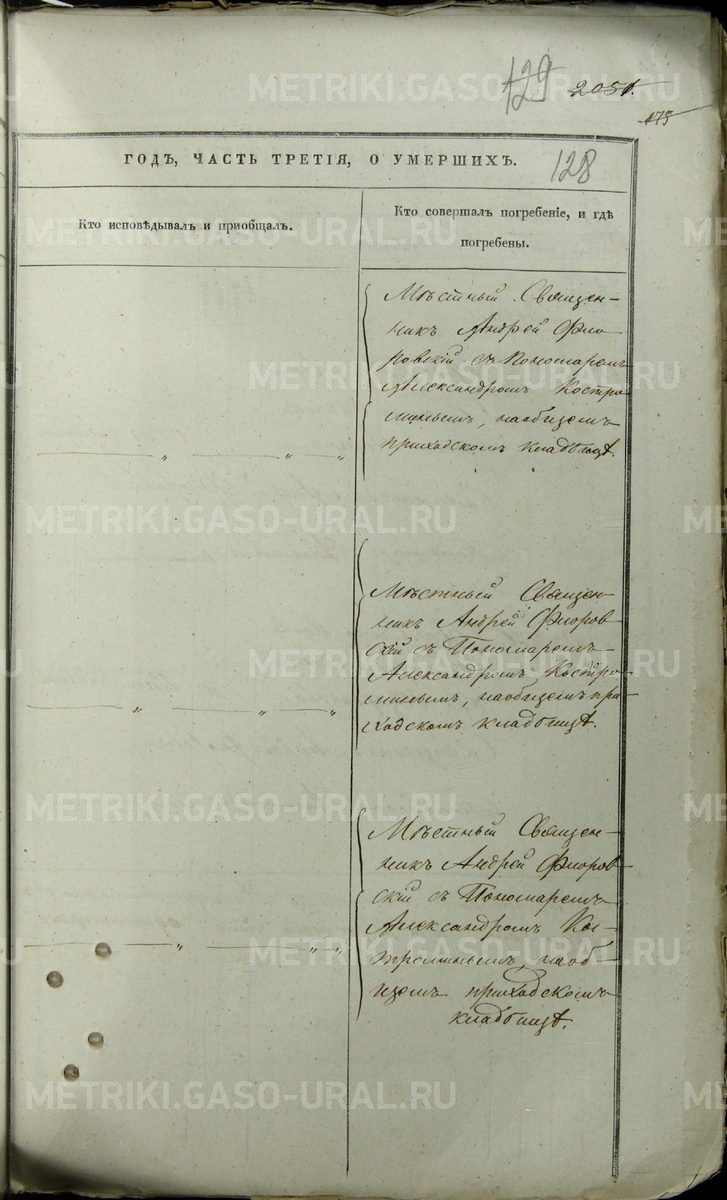 129 2051.
175
ГОДЪ, ЧАСТЬ ТРЕТІЯ, О УМЕРШИХЪ. 128
Кто исповѣдывалъ и приобщалъ.
Кто совершалъ погребеніе, и гдѣ
погребены.
Мѣстный Священ-
никъ Андрей Флю
ровскій съ Пономаремъ
Александромъ Костро
минымъ, наобщемъ
приходскомъ кладбищѣ.
Мѣстный Священ
никъ Андрей Флюров
скій съ Пономаремъ
Александромъ Костро
минымъ, наобщемъ при-
ходскомъ кладбищѣ.
Мѣстный Священ-
никъ Андрей Флюров
скій съ Пономаремъ
Александромъ Кос-
троминымъ, наоб-
щемъ приходскомъ
кладбищѣ.
METRIKI.GASO-URAL.RU